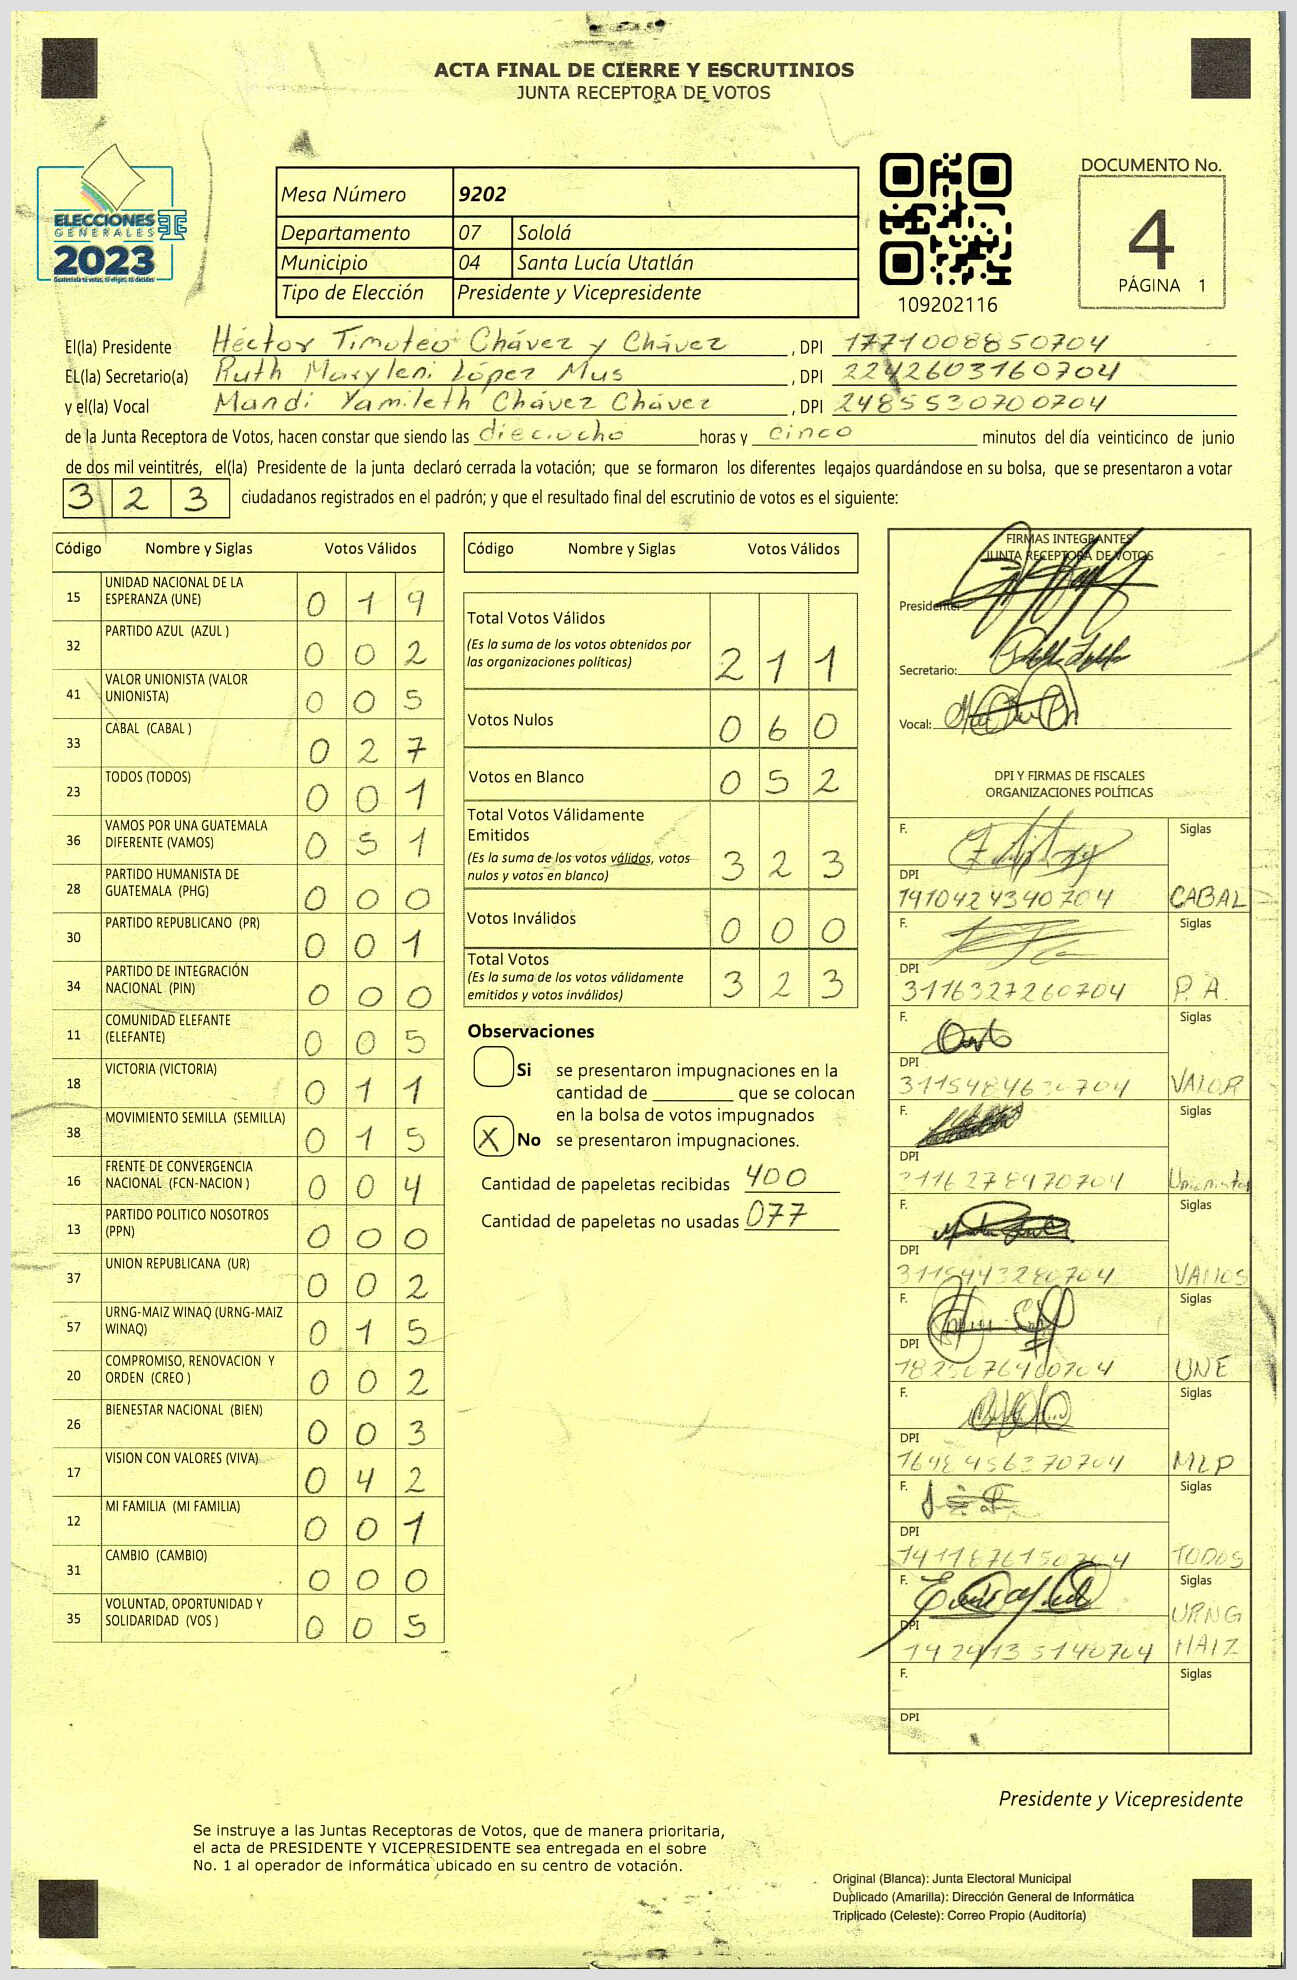 ACTA FINAL DE CIERRE Y ESCRUTINIOS
JUNTA RECEPTORA DE VOTOS
ELECCIONES
GENERALES
2023
Guatemala tú votas, tú eliges, tú decides
Mesa Número 9202
Departamento 07 Sololá
Municipio 04 Santa Lucía Utatlán
Tipo de Elección Presidente y Vicepresidente
109202116
DOCUMENTO No.
4
PÁGINA 1
El(la) Presidente Héctor Timoteo Chávez y Chávez , DPI 1771008850704
EL(la) Secretario(a) Ruth Maryleni López Mus , DPI 2242603160704
y el(la) Vocal Mandi Yamileth Chávez Chávez , DPI 2485530700704
de la Junta Receptora de Votos, hacen constar que siendo las dieciocho horas y cinco minutos del día veinticinco de junio
de dos mil veintitrés, el(la) Presidente de la junta declaró cerrada la votación; que se formaron los diferentes legajos guardándose en su bolsa, que se presentaron a votar
3 2 3 ciudadanos registrados en el padrón; y que el resultado final del escrutinio de votos es el siguiente:
Código Nombre y Siglas Votos Válidos
15 UNIDAD NACIONAL DE LA ESPERANZA (UNE) 0 1 9
32 PARTIDO AZUL (AZUL ) 0 0 2
41 VALOR UNIONISTA (VALOR UNIONISTA) 0 0 5
33 CABAL (CABAL ) 0 2 7
23 TODOS (TODOS) 0 0 1
36 VAMOS POR UNA GUATEMALA DIFERENTE (VAMOS) 0 5 1
28 PARTIDO HUMANISTA DE GUATEMALA (PHG) 0 0 0
30 PARTIDO REPUBLICANO (PR) 0 0 1
34 PARTIDO DE INTEGRACIÓN NACIONAL (PIN) 0 0 0
11 COMUNIDAD ELEFANTE (ELEFANTE) 0 0 5
18 VICTORIA (VICTORIA) 0 1 1
38 MOVIMIENTO SEMILLA (SEMILLA) 0 1 5
16 FRENTE DE CONVERGENCIA NACIONAL (FCN-NACION ) 0 0 4
13 PARTIDO POLITICO NOSOTROS (PPN) 0 0 0
37 UNION REPUBLICANA (UR) 0 0 2
57 URNG-MAIZ WINAQ (URNG-MAIZ WINAQ) 0 1 5
20 COMPROMISO, RENOVACION Y ORDEN (CREO ) 0 0 2
26 BIENESTAR NACIONAL (BIEN) 0 0 3
17 VISION CON VALORES (VIVA) 0 4 2
12 MI FAMILIA (MI FAMILIA) 0 0 1
31 CAMBIO (CAMBIO) 0 0 0
35 VOLUNTAD, OPORTUNIDAD Y SOLIDARIDAD (VOS ) 0 0 5
Código Nombre y Siglas Votos Válidos
Total Votos Válidos
(Es la suma de los votos obtenidos por
las organizaciones políticas) 2 1 1
Votos Nulos 0 6 0
Votos en Blanco 0 5 2
Total Votos Válidamente
Emitidos
(Es la suma de los votos válidos, votos
nulos y votos en blanco) 3 2 3
Votos Inválidos 0 0 0
Total Votos
(Es la suma de los votos válidamente
emitidos y votos inválidos) 3 2 3
Observaciones
Si se presentaron impugnaciones en la
cantidad de ________ que se colocan
en la bolsa de votos impugnados
X No se presentaron impugnaciones.
Cantidad de papeletas recibidas 400
Cantidad de papeletas no usadas 077
FIRMAS INTEGRANTES
JUNTA RECEPTORA DE VOTOS
Presidente:
Secretario:
Vocal:
DPI Y FIRMAS DE FISCALES
ORGANIZACIONES POLÍTICAS
F. Siglas
DPI
1910424340704 CABAL
F. Siglas
DPI
3116327260704 P. A.
F. Siglas
DPI
VALOR
F. Siglas
DPI
Unionista
F. Siglas
DPI
3115443280704 VAMOS
F. Siglas
DPI
UNE
F. Siglas
DPI
MLP
F. Siglas
DPI
TODOS
F. Siglas
DPI
URNG
MAIZ
F. Siglas
DPI
Presidente y Vicepresidente
Se instruye a las Juntas Receptoras de Votos, que de manera prioritaria,
el acta de PRESIDENTE Y VICEPRESIDENTE sea entregada en el sobre
No. 1 al operador de informática ubicado en su centro de votación.
Original (Blanca): Junta Electoral Municipal
Duplicado (Amarilla): Dirección General de Informática
Triplicado (Celeste): Correo Propio (Auditoría)